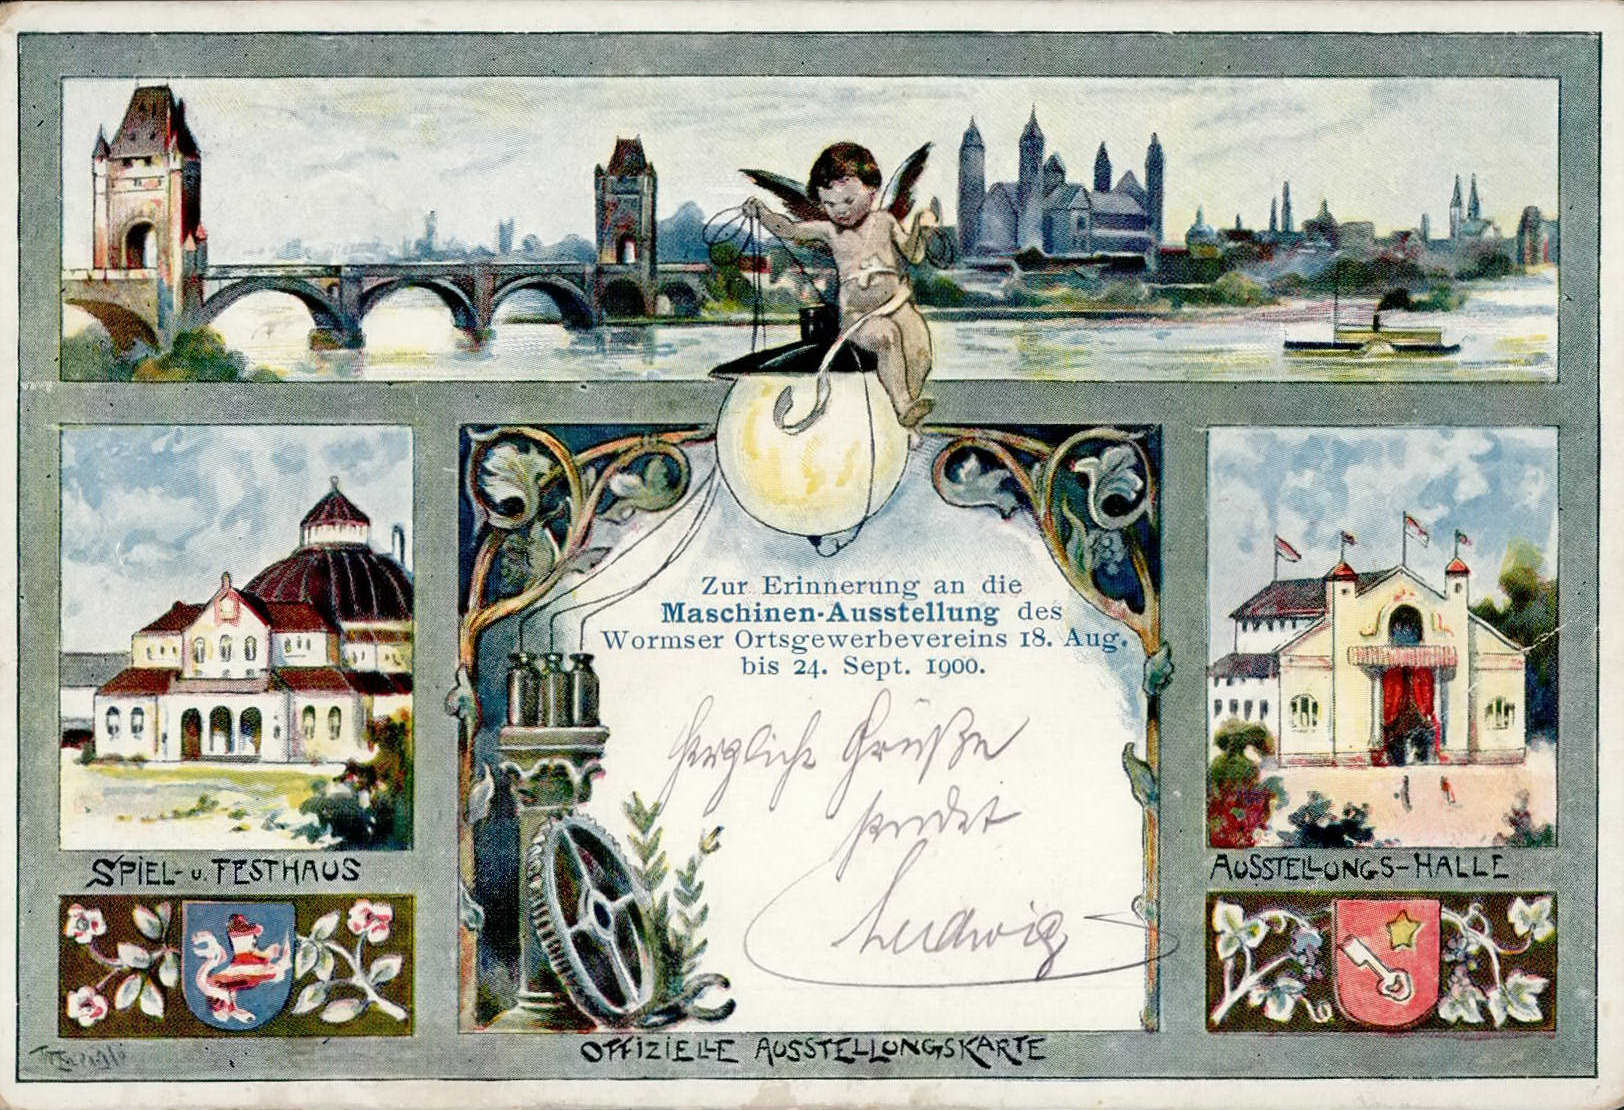 Zur Erinnerung an die
Maschinen-Ausstellung des
Wormser Ortsgewerbevereins 18. Aug.
bis 24. Sept. 1900.
Herzliche Grüße
sendet
Ludwig
SPIEL- u. FESTHAUS
AUSSTELLUNGS-HALLE
OFFIZIELLE AUSSTELLUNGSKARTE